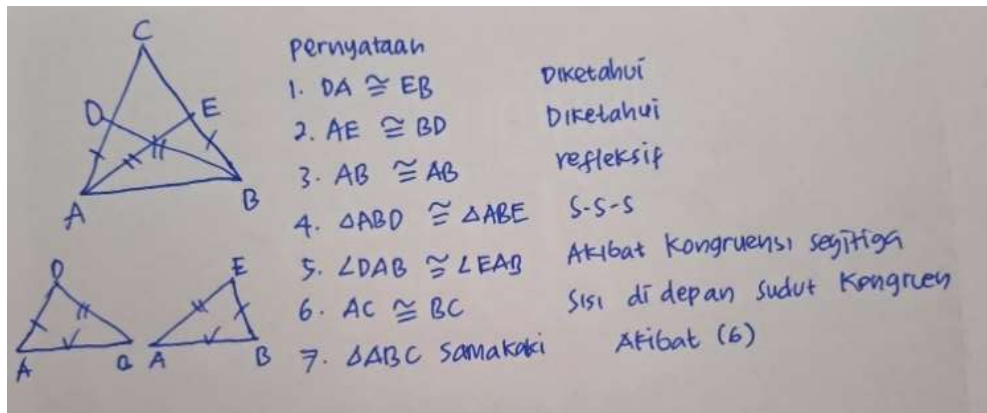 C
D
E
A
B
Pernyataan
1. DA ≅ EB Diketahui
2. AE ≅ BD Diketahui
3. AB ≅ AB refleksif
4. △ABD ≅ △ABE S-S-S
5. ∠DAB ≅ ∠EAB Akibat Kongruensi segitiga
6. AC ≅ BC Sisi di depan Sudut Kongruen
7. △ABC samakaki Akibat (6)
D E
A B A B